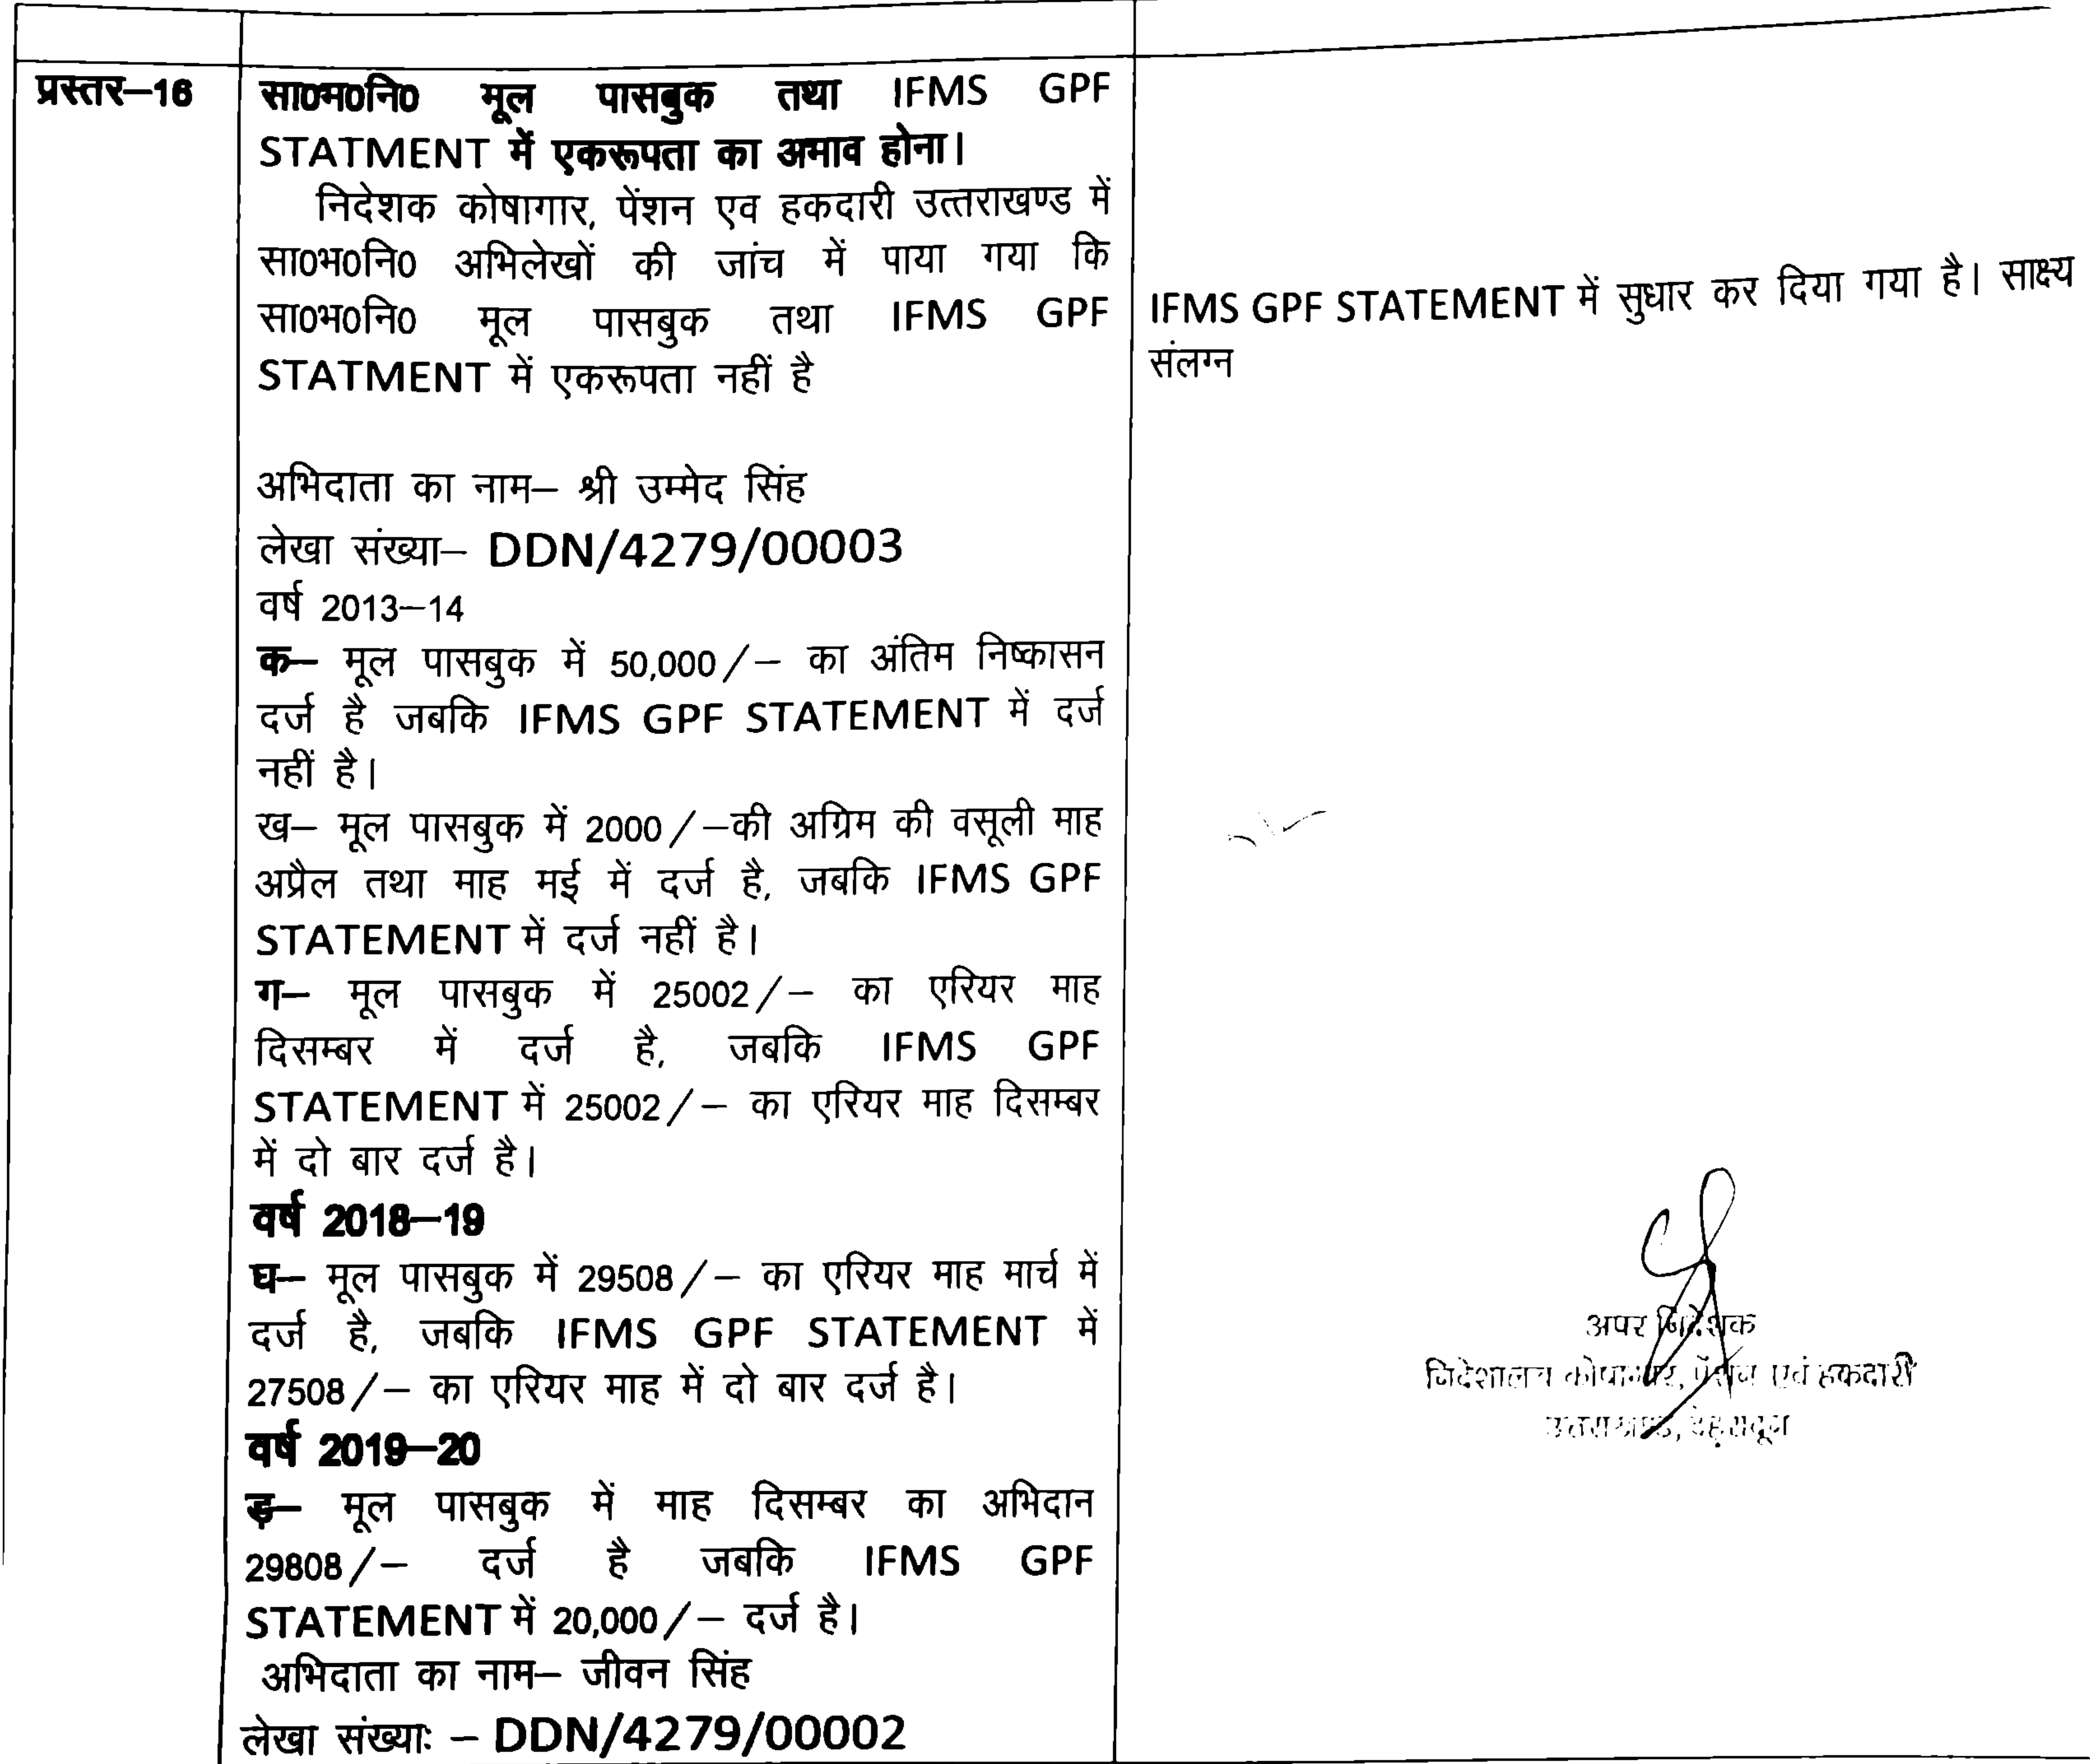 प्रस्तर–16
सा0भ0नि0 मूल पासबुक तथा IFMS GPF
STATMENT में एकरूपता का अभाव होना।
निदेशक कोषागार, पेंशन एव हकदारी उत्तराखण्ड में
सा0भ0नि0 अभिलेखों की जांच में पाया गया कि
सा0भ0नि0 मूल पासबुक तथा IFMS GPF
STATMENT में एकरूपता नहीं है
अभिदाता का नाम– श्री उम्मेद सिंह
लेखा संख्या– DDN/4279/00003
वर्ष 2013–14
क– मूल पासबुक में 50,000/– का अंतिम निष्कासन
दर्ज है जबकि IFMS GPF STATEMENT में दर्ज
नहीं है।
ख– मूल पासबुक में 2000/–की अग्रिम की वसूली माह
अप्रैल तथा माह मई में दर्ज है, जबकि IFMS GPF
STATEMENT में दर्ज नहीं है।
ग– मूल पासबुक में 25002/– का एरियर माह
दिसम्बर में दर्ज है, जबकि IFMS GPF
STATEMENT में 25002/– का एरियर माह दिसम्बर
में दो बार दर्ज है।
वर्ष 2018–19
घ– मूल पासबुक में 29508/– का एरियर माह मार्च में
दर्ज है, जबकि IFMS GPF STATEMENT में
27508/– का एरियर माह में दो बार दर्ज है।
वर्ष 2019–20
ड़– मूल पासबुक में माह दिसम्बर का अभिदान
29808/– दर्ज है जबकि IFMS GPF
STATEMENT में 20,000/– दर्ज है।
अभिदाता का नाम– जीवन सिंह
लेखा संख्याः – DDN/4279/00002
IFMS GPF STATEMENT में सुधार कर दिया गया है। साक्ष्य
संलग्न
अपर निदेशक
निदेशालय कोषागार, पेंशन एवं हकदारी
उत्तराखण्ड, देहरादून